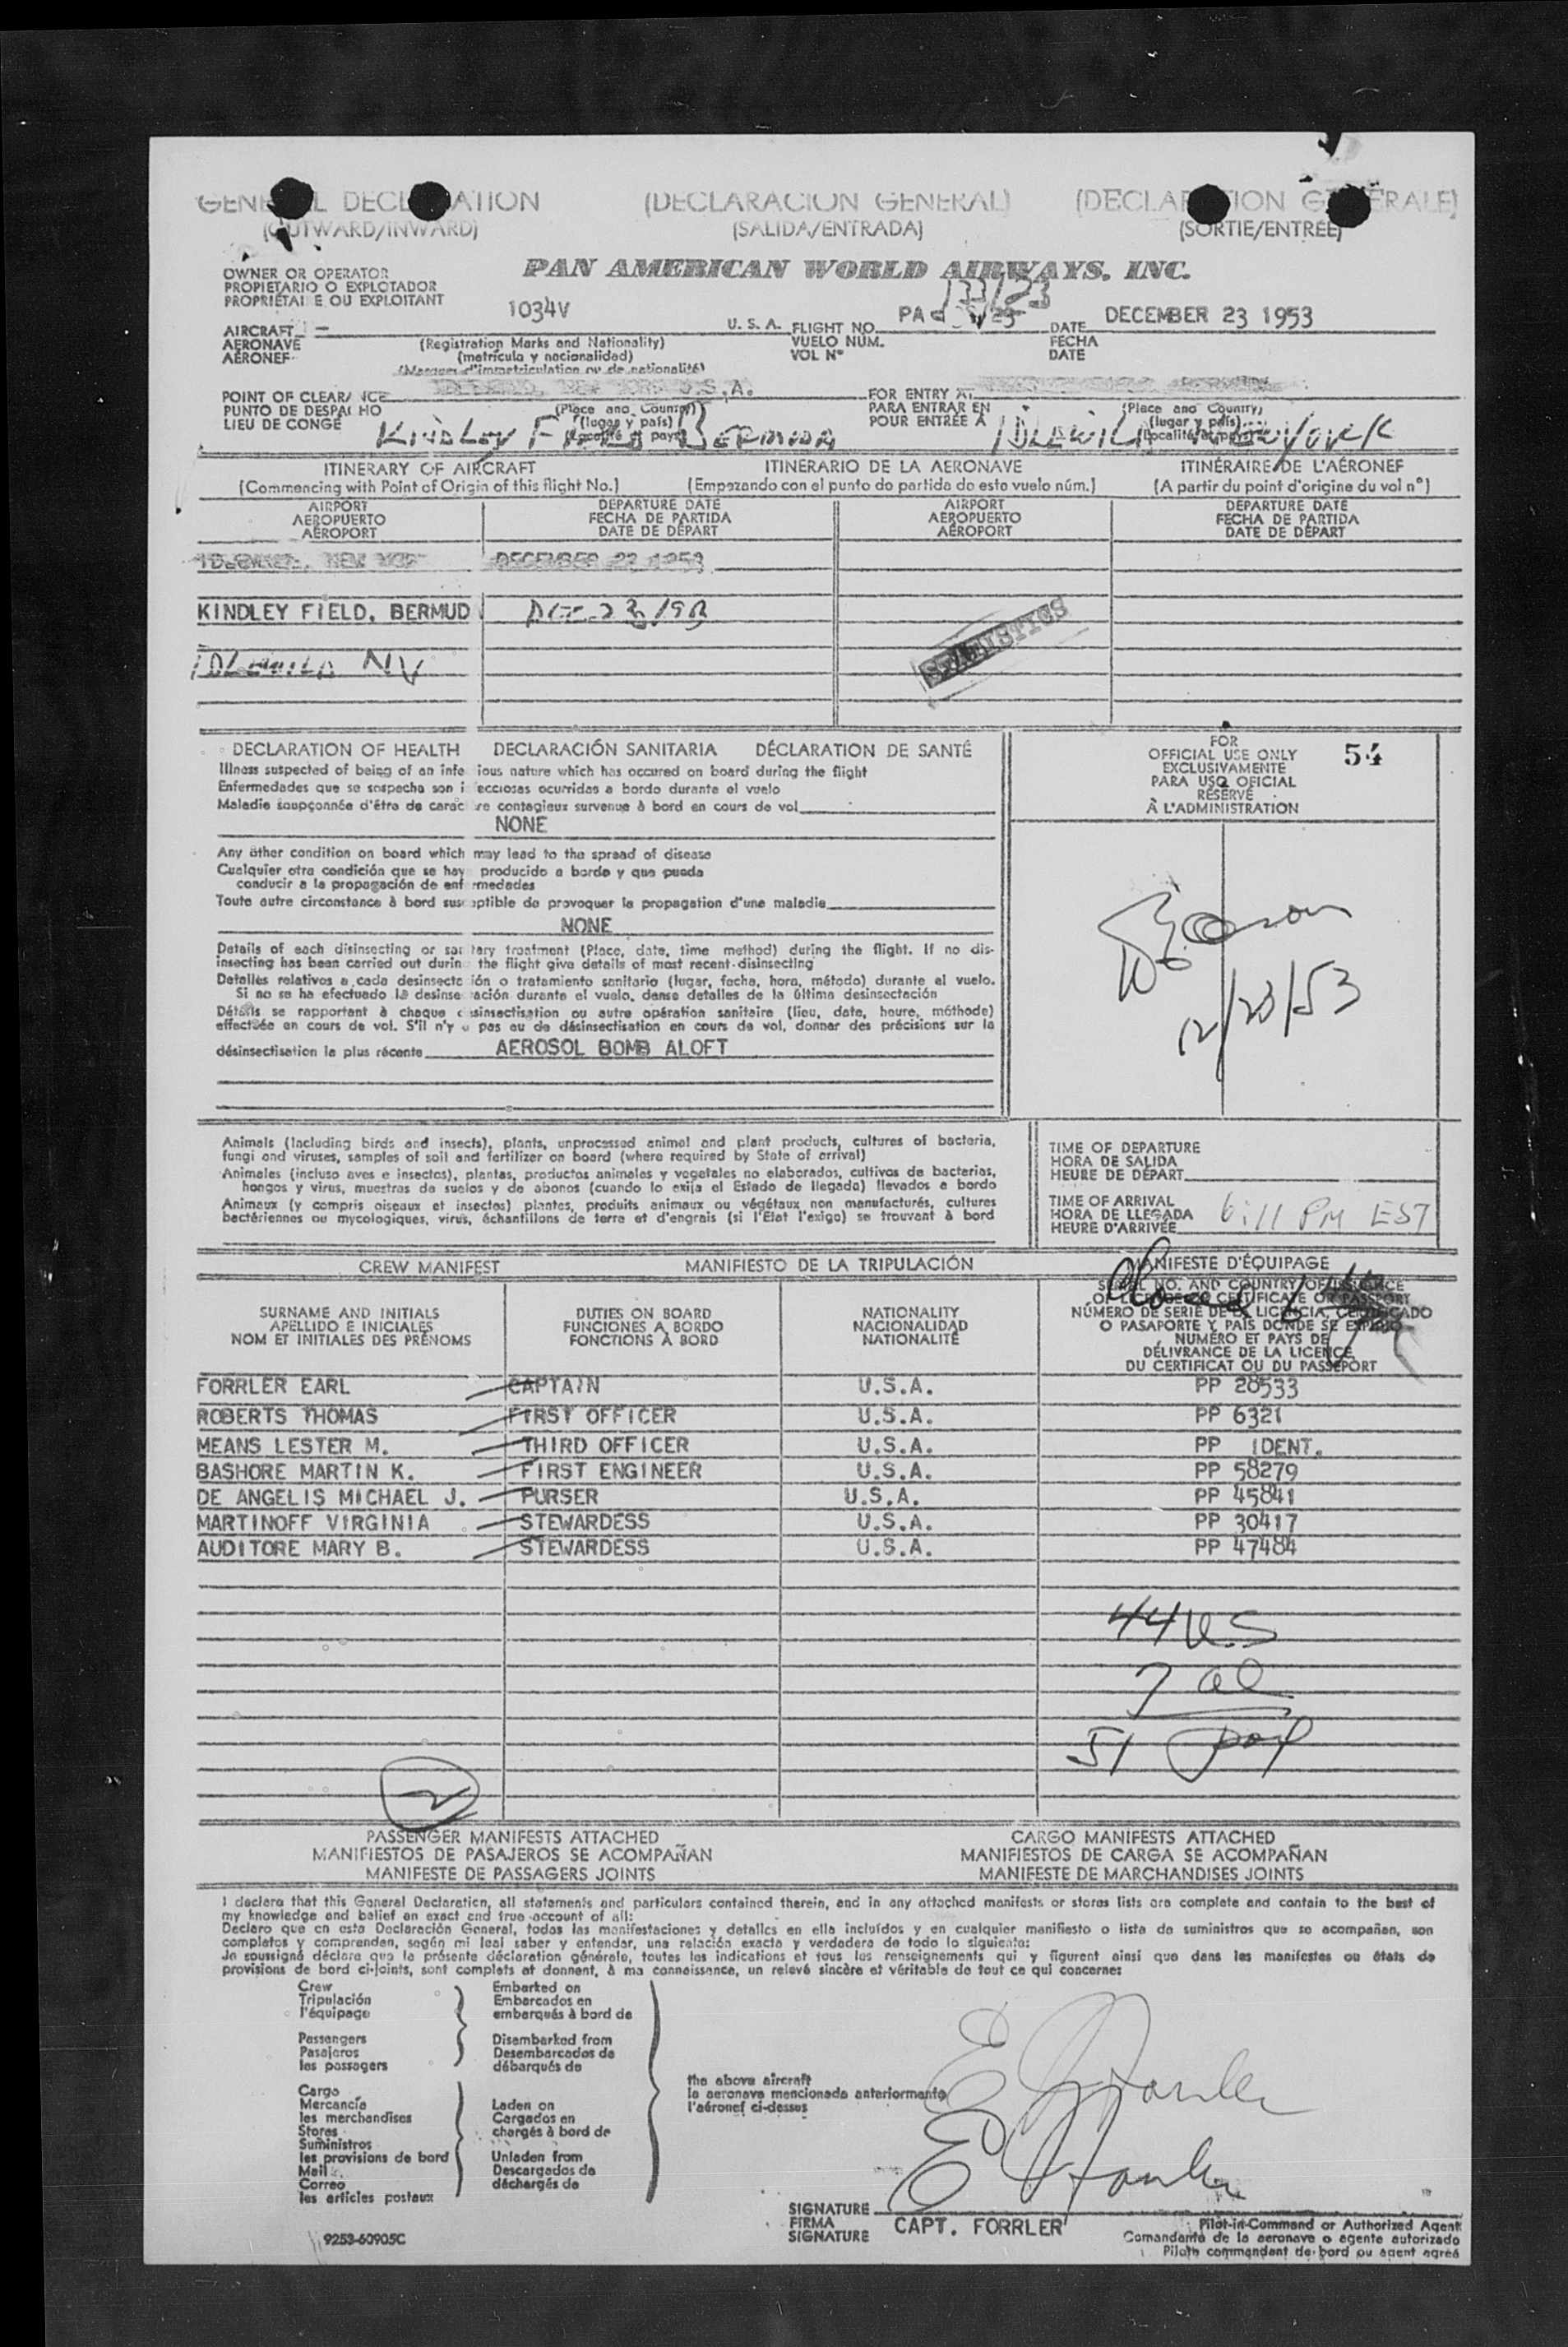 GENERAL DECLARATION (DECLARACION GENERAL) (DECLARATION GENERALE)
(OUTWARD/INWARD) (SALIDA/ENTRADA) (SORTIE/ENTRÉE)
OWNER OR OPERATOR
PROPIETARIO O EXPLOTADOR
PROPRIÉTAIRE OU EXPLOITANT
PAN AMERICAN WORLD AIRWAYS, INC.
AIRCRAFT
AERONAVE
AÉRONEF
1034V U. S. A.
(Registration Marks and Nationality)
(matrícula y nacionalidad)
(Marques d'immatriculation ou de nationalité)
FLIGHT NO. PA 131/23
VUELO NÚM.
VOL N°
DATE DECEMBER 23 1953
FECHA
DATE
POINT OF CLEARANCE U.S.A.
PUNTO DE DESPACHO
LIEU DE CONGÉ
(Place and Country)
(lugar y país)
KINDLEY FIELD BERMUDA
FOR ENTRY AT
PARA ENTRAR EN
POUR ENTRÉE À
(Place and Country)
(lugar y país)
(localité et pays)
IDLEWILD NEW YORK
ITINERARY OF AIRCRAFT ITINERARIO DE LA AERONAVE ITINÉRAIRE DE L'AÉRONEF
(Commencing with Point of Origin of this flight No.) (Empezando con el punto de partida de este vuelo núm.) (A partir du point d'origine du vol n°)
AIRPORT DEPARTURE DATE AIRPORT DEPARTURE DATE
AEROPUERTO FECHA DE PARTIDA AEROPUERTO FECHA DE PARTIDA
AÉROPORT DATE DE DÉPART AÉROPORT DATE DE DÉPART
IDLEWILD, NEW YORK DECEMBER 23 1953
KINDLEY FIELD, BERMUD DEC 23/1953
IDLEWILD NY
STATISTICS
DECLARATION OF HEALTH DECLARACIÓN SANITARIA DÉCLARATION DE SANTÉ
Illness suspected of being of an infe ious nature which has occured on board during the flight
Enfermedades que se sospecha son i ecciosas ocurridas a bordo durante el vuelo
Maladie soupçonnée d'être de carac re contagieux survenue à bord en cours de vol
NONE
Any other condition on board which may lead to the spread of disease
Cualquier otra condición que se hay producido a bordo y que pueda
conducir a la propagación de enf rmedades
Toute autre circonstance à bord sus ptible de provoquer la propagation d'une maladie
NONE
Details of each disinsecting or sani tary treatment (Place, date, time method) during the flight. If no dis-
insecting has been carried out during the flight give details of most recent disinsecting
Detalles relativos a cada desinsecta ión o tratamiento sanitario (lugar, fecha, hora, método) durante el vuelo.
Si no se ha efectuado la desinse ación durante el vuelo, dense detalles de la última desinsectación
Détails se rapportant à chaque d sinsectisation ou autre opération sanitaire (lieu, date, heure, méthode)
effectuée en cours de vol. S'il n'y a pas eu de désinsectisation en cours de vol, donner des précisions sur la
désinsectisation la plus récente AEROSOL BOMB ALOFT
FOR
OFFICIAL USE ONLY
EXCLUSIVAMENTE
PARA USO OFICIAL
RÉSERVÉ
À L'ADMINISTRATION
54
12/23/53
Animals (Including birds and insects), plants, unprocessed animal and plant products, cultures of bacteria,
fungi and viruses, samples of soil and fertilizer on board (where required by State of arrival)
Animales (incluso aves e insectos), plantas, productos animales y vegetales no elaborados, cultivos de bacterias,
hongos y virus, muestras de suelos y de abonos (cuando lo exija el Estado de llegada) llevados a bordo
Animaux (y compris oiseaux et insectes) plantes, produits animaux ou végétaux non manufacturés, cultures
bactériennes ou mycologiques, virus, échantillons de terre et d'engrais (si l'Etat l'exige) se trouvant à bord
TIME OF DEPARTURE
HORA DE SALIDA
HEURE DE DÉPART
TIME OF ARRIVAL
HORA DE LLEGADA
HEURE D'ARRIVÉE
6:11 PM EST
CREW MANIFEST MANIFIESTO DE LA TRIPULACIÓN MANIFESTE D'ÉQUIPAGE
SURNAME AND INITIALS
APELLIDO E INICIALES
NOM ET INITIALES DES PRÉNOMS
DUTIES ON BOARD
FUNCIONES A BORDO
FONCTIONS À BORD
NATIONALITY
NACIONALIDAD
NATIONALITÉ
SERIAL NO. AND COUNTRY OF ISSUANCE
OF LICENSE OR CERTIFICATE OR PASSPORT
NÚMERO DE SERIE DE LA LICENCIA, CERTIFICADO
O PASAPORTE Y PAÍS DONDE SE EXPIDIÓ
NUMÉRO ET PAYS DE
DÉLIVRANCE DE LA LICENCE,
DU CERTIFICAT OU DU PASSEPORT
FORRLER EARL CAPTAIN U.S.A. PP 28533
ROBERTS THOMAS FIRST OFFICER U.S.A. PP 6321
MEANS LESTER M. THIRD OFFICER U.S.A. PP IDENT.
BASHORE MARTIN K. FIRST ENGINEER U.S.A. PP 58279
DE ANGELIS MICHAEL J. PURSER U.S.A. PP 45841
MARTINOFF VIRGINIA STEWARDESS U.S.A. PP 30417
AUDITORE MARY B. STEWARDESS U.S.A. PP 47484
44 U.S
7 al
51 pax
2
PASSENGER MANIFESTS ATTACHED CARGO MANIFESTS ATTACHED
MANIFIESTOS DE PASAJEROS SE ACOMPAÑAN MANIFIESTOS DE CARGA SE ACOMPAÑAN
MANIFESTE DE PASSAGERS JOINTS MANIFESTE DE MARCHANDISES JOINTS
I declare that this General Declaration, all statements and particulars contained therein, and in any attached manifests or stores lists are complete and contain to the best of
my knowledge and belief an exact and true account of all:
Declaro que en esta Declaración General, todas las manifestaciones y detalles en ella incluídos y en cualquier manifiesto o lista de suministros que se acompañan, son
completos y comprenden, según mi leal saber y entender, una relación exacta y verdadera de todo lo siguiente:
Je soussigné déclare que la présente déclaration générale, toutes les indications et tous les renseignements qui y figurent ainsi que dans les manifestes ou états de
provisions de bord ci-joints, sont complets et donnent, à ma connaissance, un relevé sincère et véritable de tout ce qui concerne:
Crew
Tripulación
l'équipage
Passengers
Pasajeros
les passagers
Cargo
Mercancía
les merchandises
Stores
Suministros
les provisions de bord
Mail
Correo
les articles postaux
Embarked on
Embarcados en
embarqués à bord de
Disembarked from
Desembarcados de
débarqués de
Laden on
Cargados en
chargés à bord de
Unladen from
Descargados de
déchargés de
the above aircraft
la aeronave mencionada anteriormente
l'aéronef ci-dessus
SIGNATURE
FIRMA
SIGNATURE
CAPT. FORRLER
Pilot-in-Command or Authorized Agent
Comandante de la aeronave o agente autorizado
Pilote commandant de bord ou agent agréé
9253-60905C